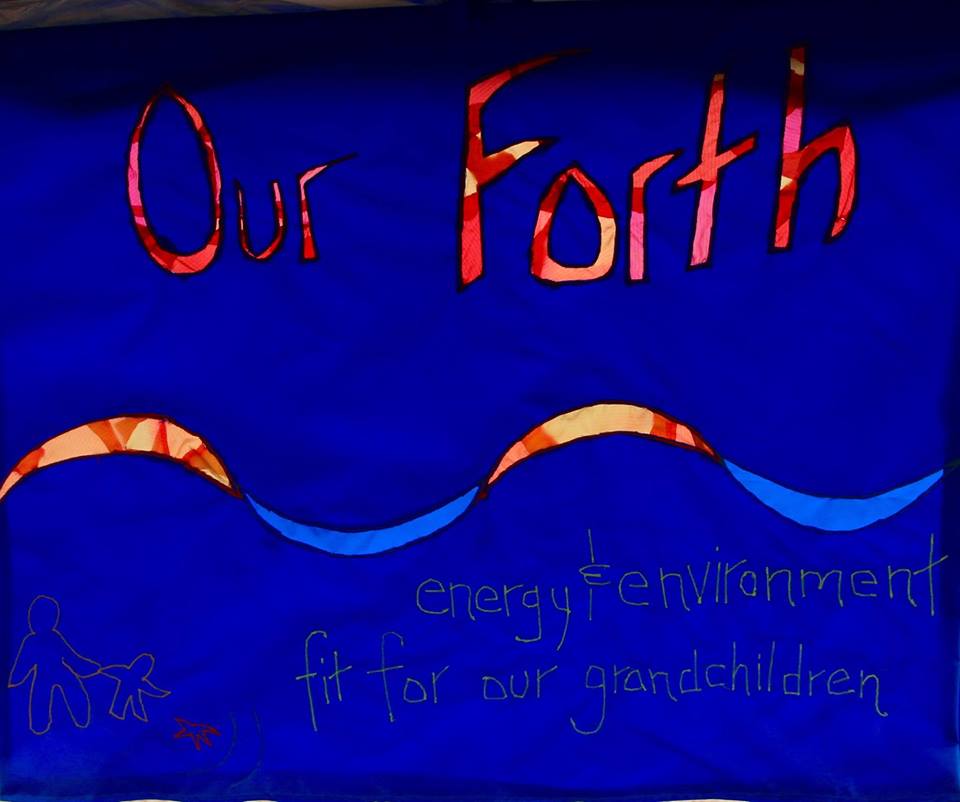 Our Forth
energy & environment
fit for our grandchildren